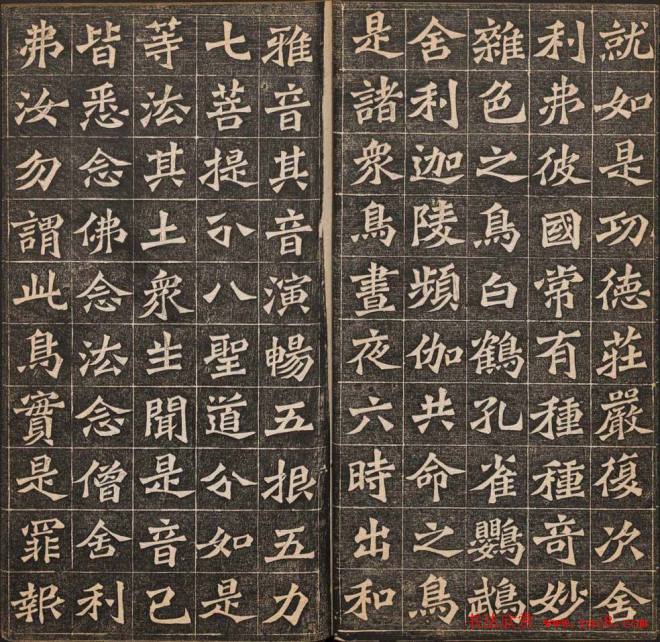 就如是功德莊嚴復次舍
利弗彼國常有種種奇妙
雜色之鳥白鶴孔雀鸚鵡
舍利迦陵頻伽共命之鳥
是諸衆鳥晝夜六時出和
雅音其音演暢五根五力
七菩提分八聖道分如是
等法其土衆生聞是音已
皆悉念佛念法念僧舍利
弗汝勿謂此鳥實是罪報